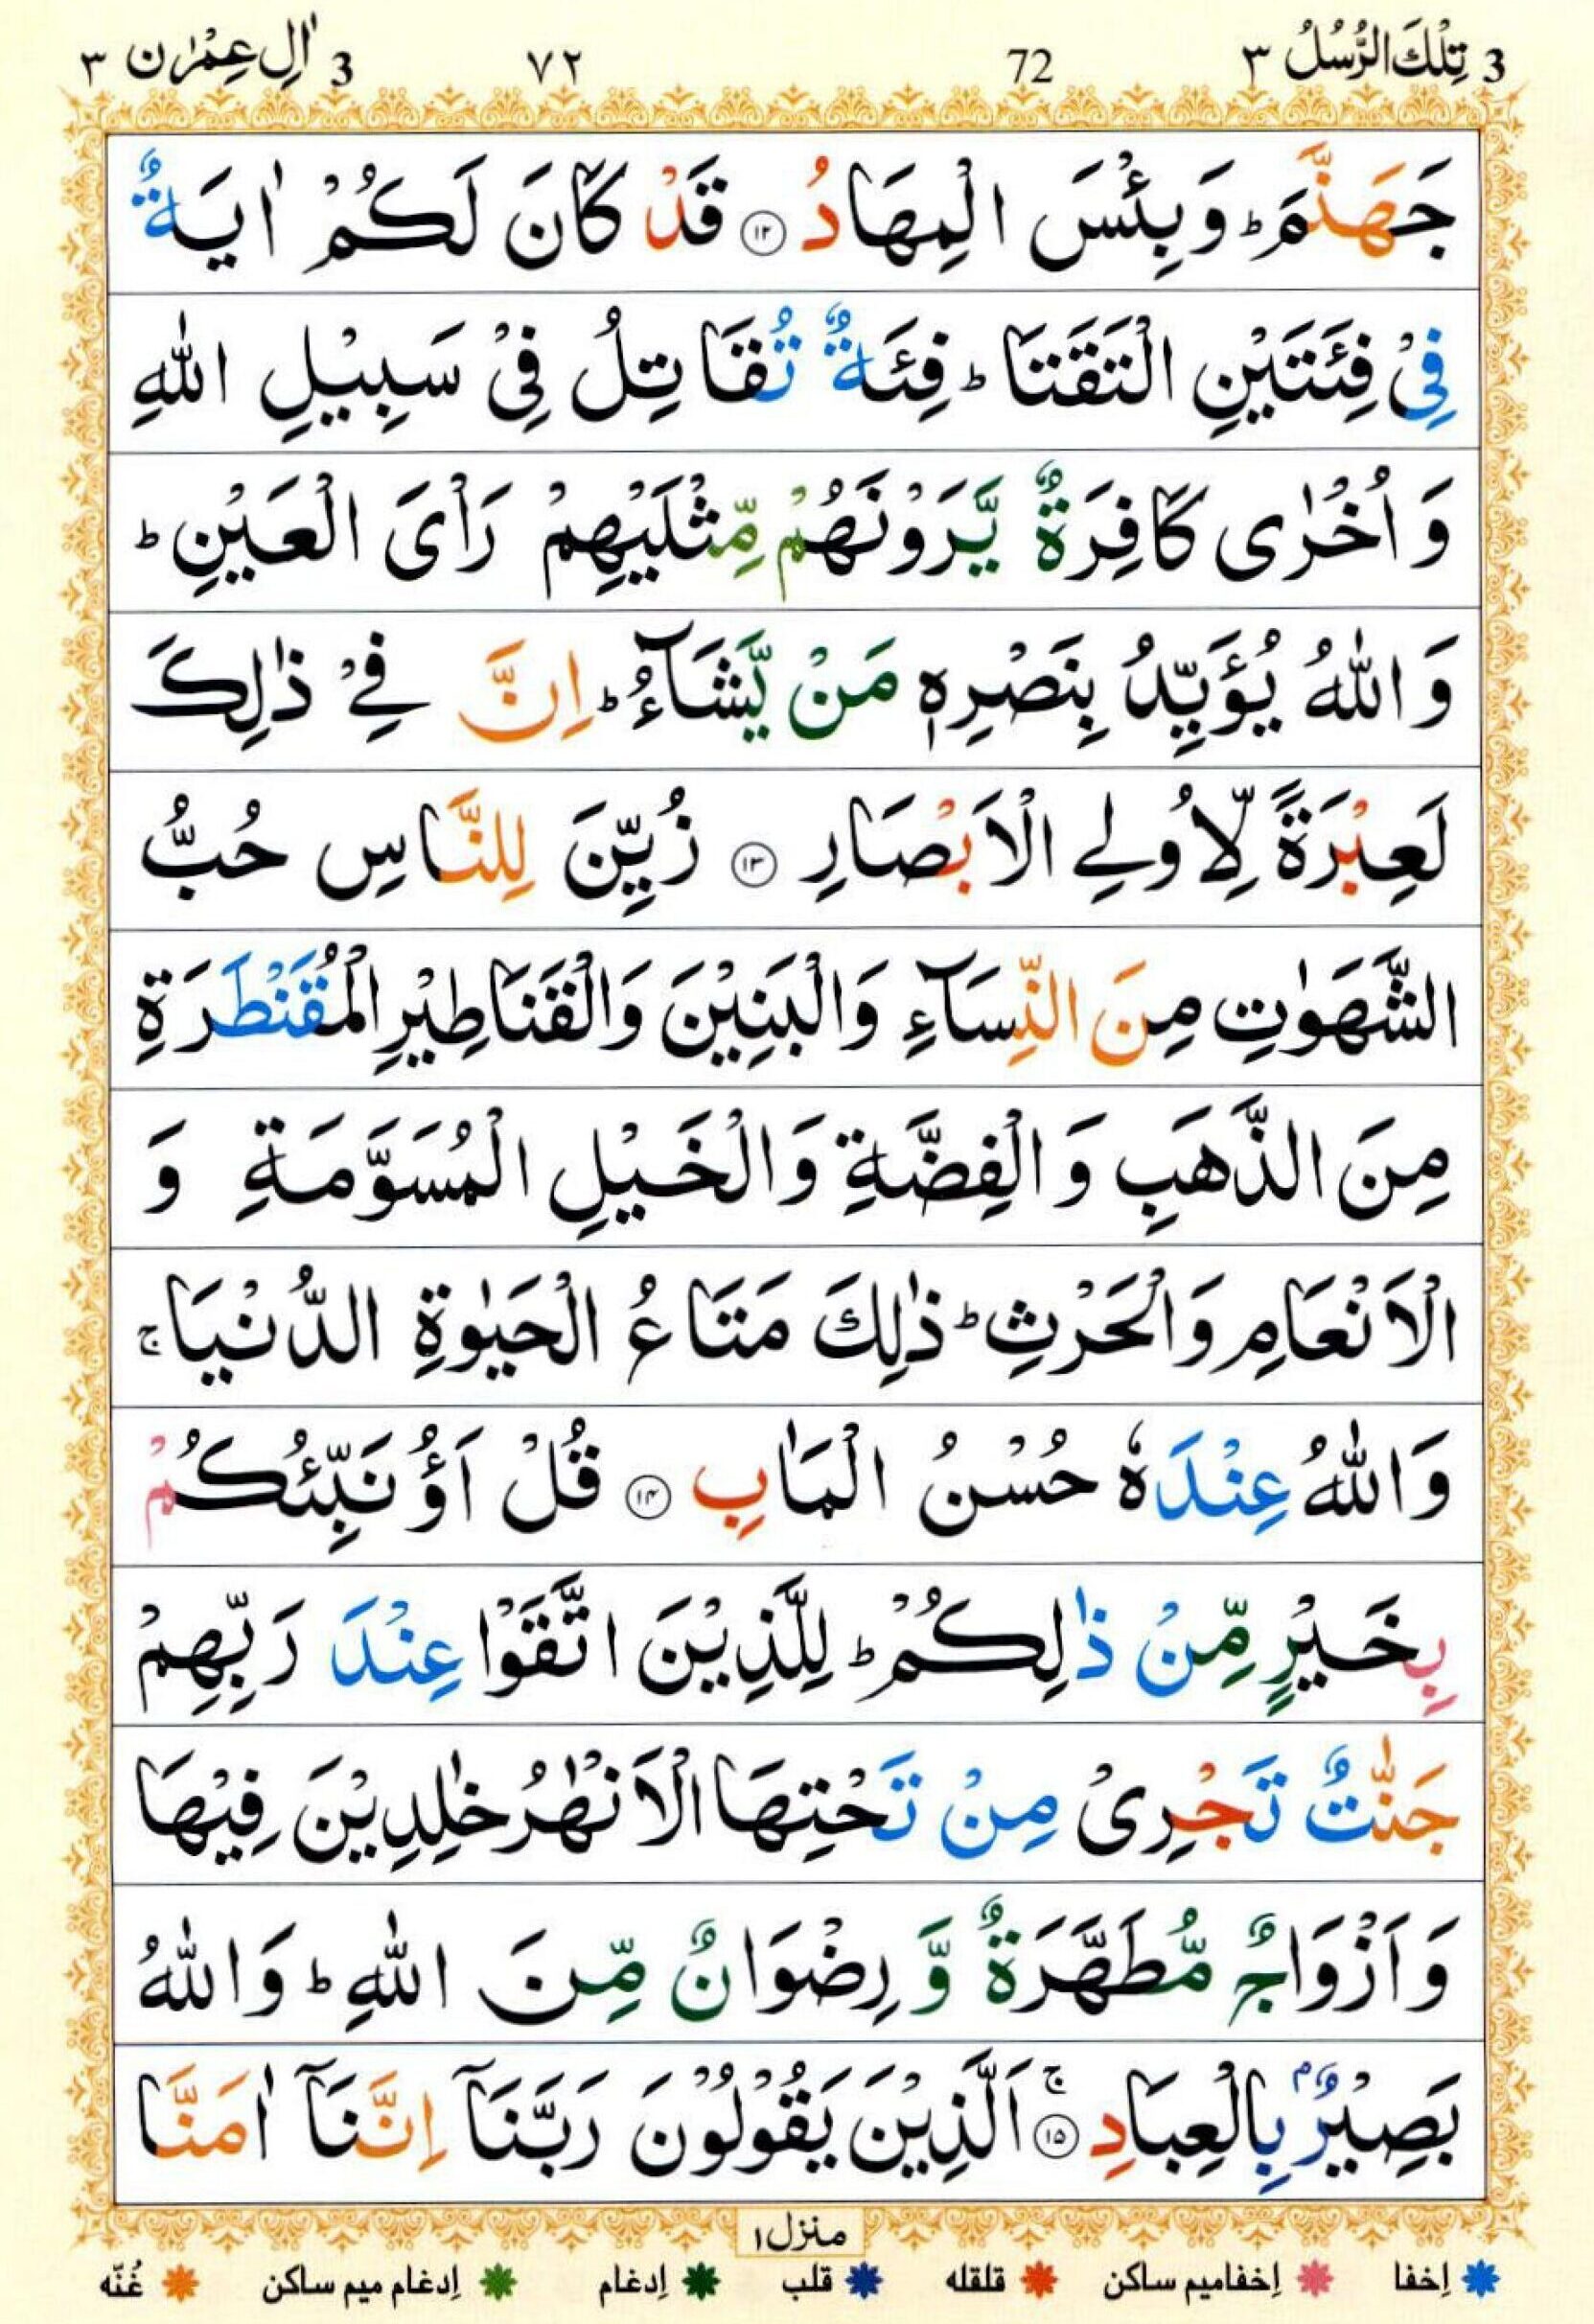 3 تِلْكَ الرُّسُلُ ٣ 72 ٧٢ 3 اٰلِ عِمْرٰن ٣
جَهَنَّمَ ؕ وَ بِئْسَ الْمِهَادُ ۝۱۲ قَدْ كَانَ لَكُمْ اٰيَةٌ
فِیْ فِئَتَيْنِ الْتَقَتَا ؕ فِئَةٌ تُقَاتِلُ فِیْ سَبِيْلِ اللّٰهِ
وَ اُخْرٰى كَافِرَةٌ يَّرَوْنَهُمْ مِّثْلَيْهِمْ رَاْیَ الْعَيْنِ ؕ
وَ اللّٰهُ يُؤَيِّدُ بِنَصْرِهٖ مَنْ يَّشَآءُ ؕ اِنَّ فِیْ ذٰلِكَ
لَعِبْرَةً لِّاُولِی الْاَبْصَارِ ۝۱۳ زُيِّنَ لِلنَّاسِ حُبُّ
الشَّهَوٰتِ مِنَ النِّسَآءِ وَالْبَنِيْنَ وَالْقَنَاطِيْرِ الْمُقَنْطَرَةِ
مِنَ الذَّهَبِ وَ الْفِضَّةِ وَ الْخَيْلِ الْمُسَوَّمَةِ وَ
الْاَنْعَامِ وَ الْحَرْثِ ؕ ذٰلِكَ مَتَاعُ الْحَيٰوةِ الدُّنْيَا ۚ
وَ اللّٰهُ عِنْدَهٗ حُسْنُ الْمَاٰبِ ۝۱۴ قُلْ اَؤُنَبِّئُكُمْ
بِخَيْرٍ مِّنْ ذٰلِكُمْ ؕ لِلَّذِيْنَ اتَّقَوْا عِنْدَ رَبِّهِمْ
جَنّٰتٌ تَجْرِیْ مِنْ تَحْتِهَا الْاَنْهٰرُ خٰلِدِيْنَ فِيْهَا
وَ اَزْوَاجٌ مُّطَهَّرَةٌ وَّ رِضْوَانٌ مِّنَ اللّٰهِ ؕ وَ اللّٰهُ
بَصِيْرٌۢ بِالْعِبَادِ ۝۱۵ۚ اَلَّذِيْنَ يَقُوْلُوْنَ رَبَّنَاۤ اِنَّنَاۤ اٰمَنَّا
منزل ۱
إخفا إخفا میم ساکن قلقله قلب إدغام إدغام میم ساکن غُنّه